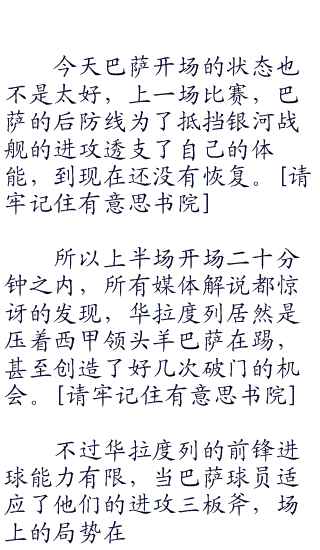 今天巴萨开场的状态也
不是太好，上一场比赛，巴
萨的后防线为了抵挡银河战
舰的进攻透支了自己的体
能，到现在还没有恢复。[请
牢记住有意思书院]
所以上半场开场二十分
钟之内，所有媒体解说都惊
讶的发现，华拉度列居然是
压着西甲领头羊巴萨在踢，
甚至创造了好几次破门的机
会。[请牢记住有意思书院]
不过华拉度列的前锋进
球能力有限，当巴萨球员适
应了他们的进攻三板斧，场
上的局势在